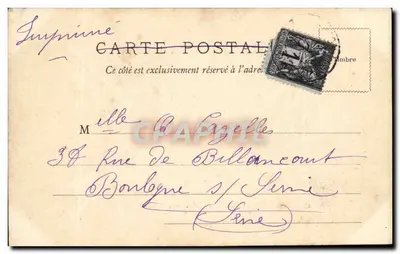 Imprimé
CARTE POSTALE
Ce côté est exclusivement réservé à l'adres
timbre
1
Mlle A Cazelles
38 Rue de Billancourt
Boulogne s/ Seine
(Seine)
CPAPHIL